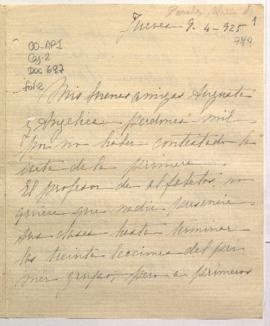 Jueves 9-4-925
1
744
OO-AP1
Caj-2
Doc 687
fol 2
Mis buenas amigas Augusta
y Angelica perdones mil
por no haber contestado la
carta de la primera
El profesor de alfabetos, no
quiere que nadie, presencie
sus clases hasta terminar
las treinta lecciones del pri
mer grupo, pero a primeros